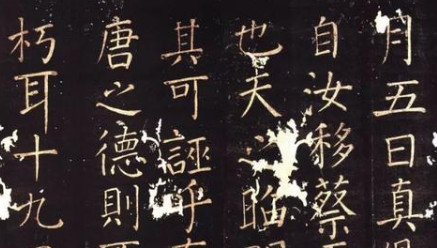 月五日真
自汝移蔡
也天之昭
其可誣乎
唐之德則
朽耳十九